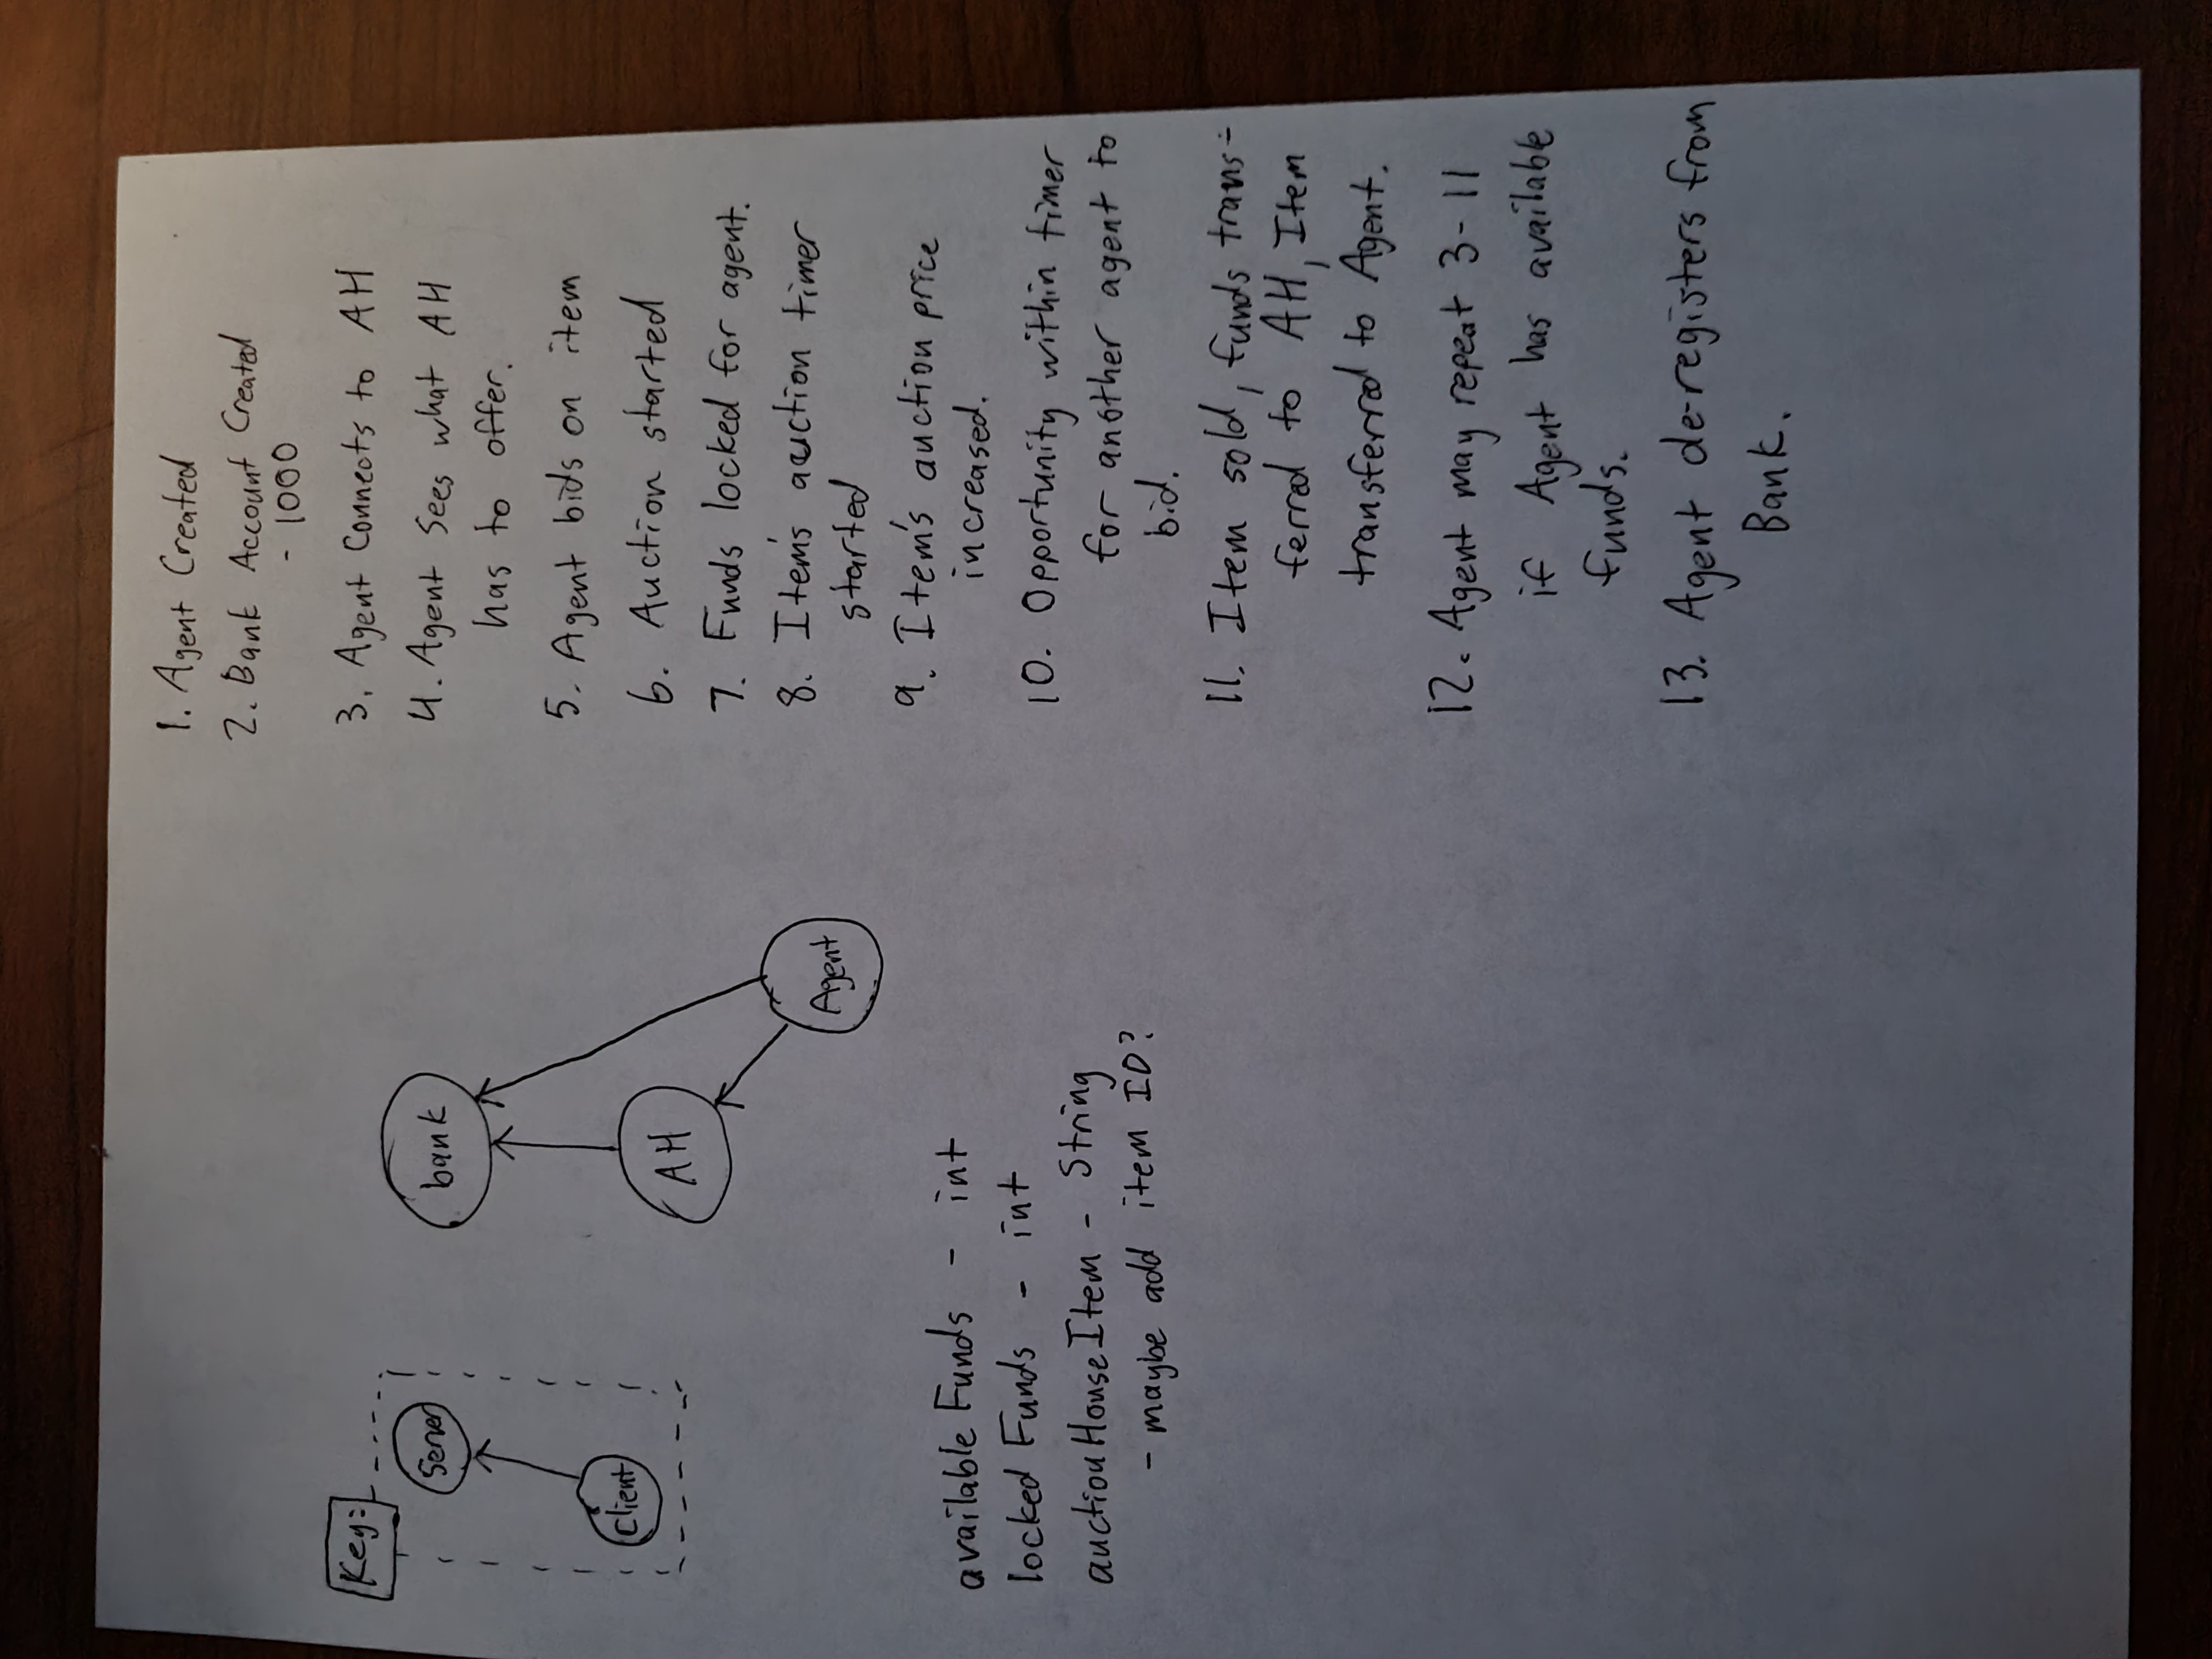 Key:
Server
Client
bank
AH
Agent
available Funds - int
locked Funds - int
auctionHouseItem - String
- maybe add item ID?
1. Agent Created
2. Bank Account Created
- 1000
3. Agent Connects to AH
4. Agent Sees what AH
has to offer.
5. Agent bids on item
6. Auction started
7. Funds locked for agent.
8. Item's auction timer
started
9. Item's auction price
increased.
10. Opportunity within timer
for another agent to
bid.
11. Item sold, funds trans-
ferred to AH, Item
transferred to Agent.
12. Agent may repeat 3-11
if Agent has available
funds.
13. Agent de-registers from
Bank.